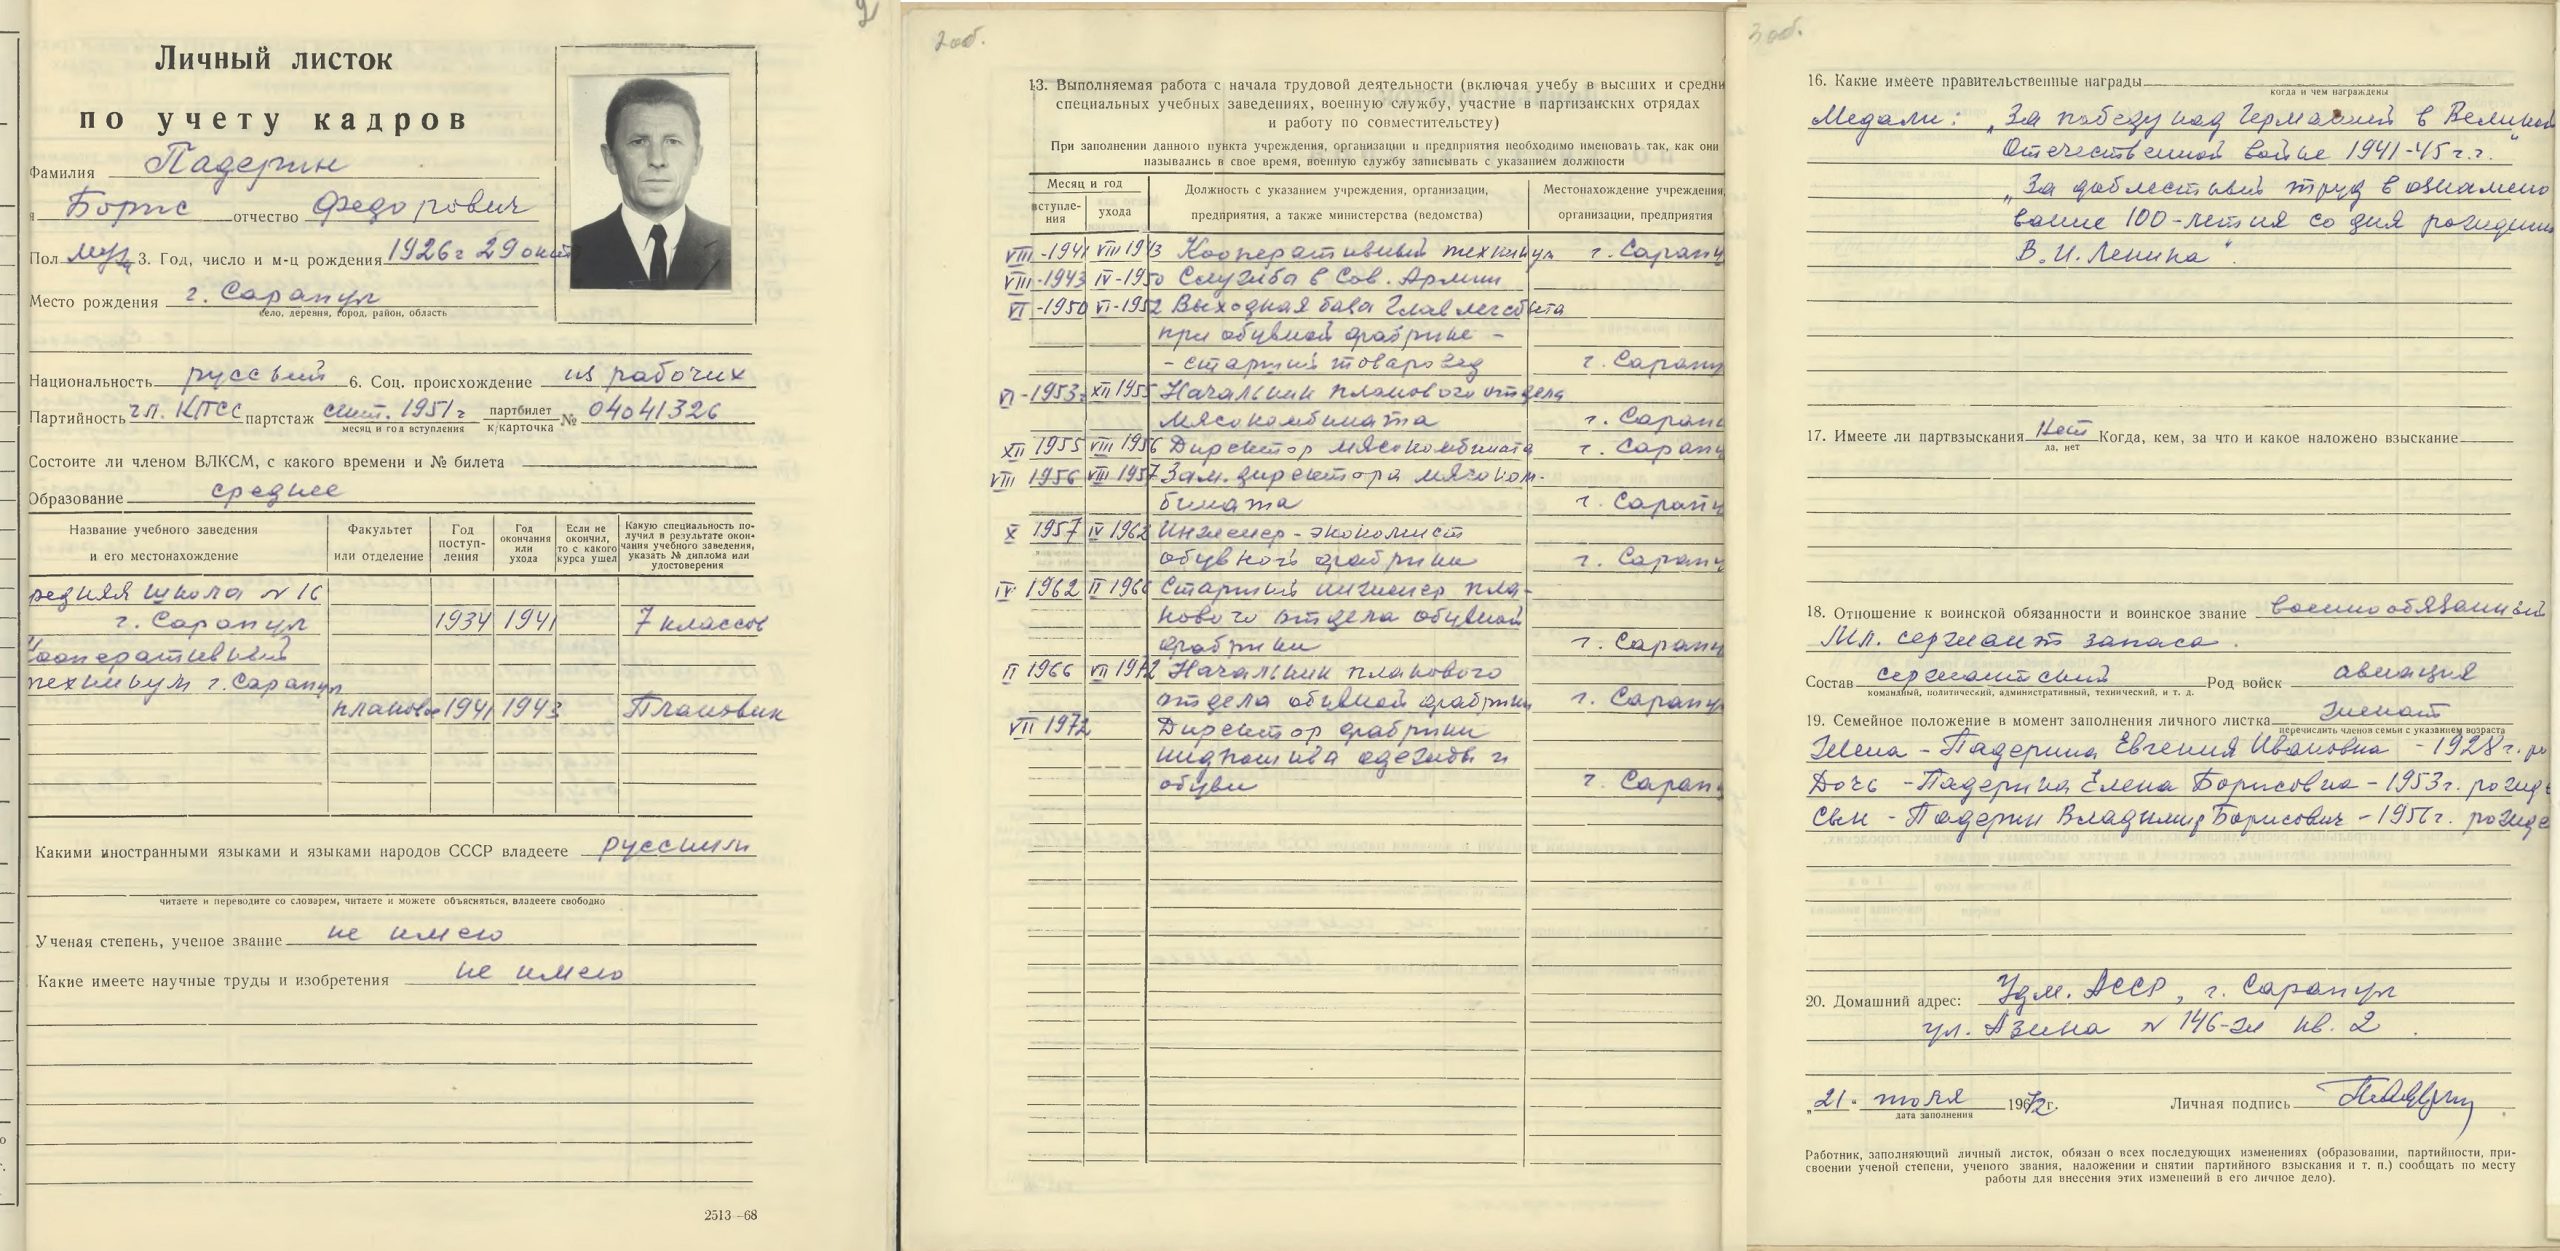 2
Личный листок
по учету кадров
Фамилия Падерин
я Борис отчество Федорович
Пол муж 3. Год, число и м-ц рождения 1926 г 29 окт
Место рождения г. Сарапул
село, деревня, город, район, область
Национальность русский 6. Соц. происхождение из рабочих
Партийность чл. КПСС партстаж сент. 1951 г партбилет № 04041326
месяц и год вступления к/карточка
Состоите ли членом ВЛКСМ, с какого времени и № билета
Образование среднее
Название учебного заведения и его местонахождение Факультет или отделение Год поступ-ления Год окончания или ухода Если не окончил, то с какого курса ушел Какую специальность по-лучил в результате окон-чания учебного заведения, указать № диплома или удостоверения
редняя школа № 16
г. Сарапул 1934 1941 7 классов
Кооперативный
техникум г. Сарапул
плановое 1941 1943 Плановик
Какими иностранными языками и языками народов СССР владеете русским
читаете и переводите со словарем, читаете и можете объясняться, владеете свободно
Ученая степень, ученое звание не имею
Какие имеете научные труды и изобретения не имею
2513–68
2об.
13. Выполняемая работа с начала трудовой деятельности (включая учебу в высших и средни
специальных учебных заведениях, военную службу, участие в партизанских отрядах
и работу по совместительству)
При заполнении данного пункта учреждения, организации и предприятия необходимо именовать так, как они
назывались в свое время, военную службу записывать с указанием должности
Месяц и год вступле-ния ухода Должность с указанием учреждения, организации, предприятия, а также министерства (ведомства) Местонахождение учреждения, организации, предприятия
VIII-1941 VIII 1943 Кооперативный техникум г. Сарапу
VIII-1943 IV-1950 Служба в Сов. Армии
VI-1950 VI-1952 Выходная база Главлегсбыта
при обувной фабрике -
- старший товаровед г. Сарапу
VI-1953 г XII 1955 Начальник планового отдела
мясокомбината г. Сарап
XII 1955 VIII 1956 Директор мясокомбината г. Сарапу
VIII 1956 VIII 1957 Зам. директора мяском-
бината г. Сарапу
X 1957 IV 1962 Инженер-экономист
обувной фабрики г. Сарапу
IV 1962 II 1966 Старший инженер пла-
нового отдела обувной
фабрики г. Сарапу
II 1966 VII 1972 Начальник планового
отдела обувной фабрики г. Сарапу
VII 1972 Директор фабрики
индпошива одежды и
обуви г. Сарап
3об.
16. Какие имеете правительственные награды
когда и чем награждены
Медали: „За победу над Германией в Великой
Отечественной войне 1941-45 г.г.“
„За доблестный труд в ознамено
вание 100-летия со дня рожден
В. И. Ленина“.
17. Имеете ли партвзыскания нет Когда, кем, за что и какое наложено взыскание
да, нет
18. Отношение к воинской обязанности и воинское звание военнообязанный
Мл. сержант запаса.
Состав сержантский Род войск авиация
командный, политический, административный, технический, и т. д.
19. Семейное положение в момент заполнения личного листка женат
перечислить членов семьи с указанием возраста
Жена - Падерина Евгения Ивановна - 1928 г. ро
Дочь - Падерина Елена Борисовна - 1953 г. рожд
Сын - Падерин Владимир Борисович - 1956 г. рожде
20. Домашний адрес: Удм. АССР, г. Сарапул
ул. Азина № 146-ж кв. 2.
„21“ июля 1972 г. Личная подпись Падерин
дата заполнения
Работник, заполняющий личный листок, обязан о всех последующих изменениях (образовании, партийности, при-
своении ученой степени, ученого звания, наложении и снятии партийного взыскания и т. п.) сообщать по месту
работы для внесения этих изменений в его личное дело).